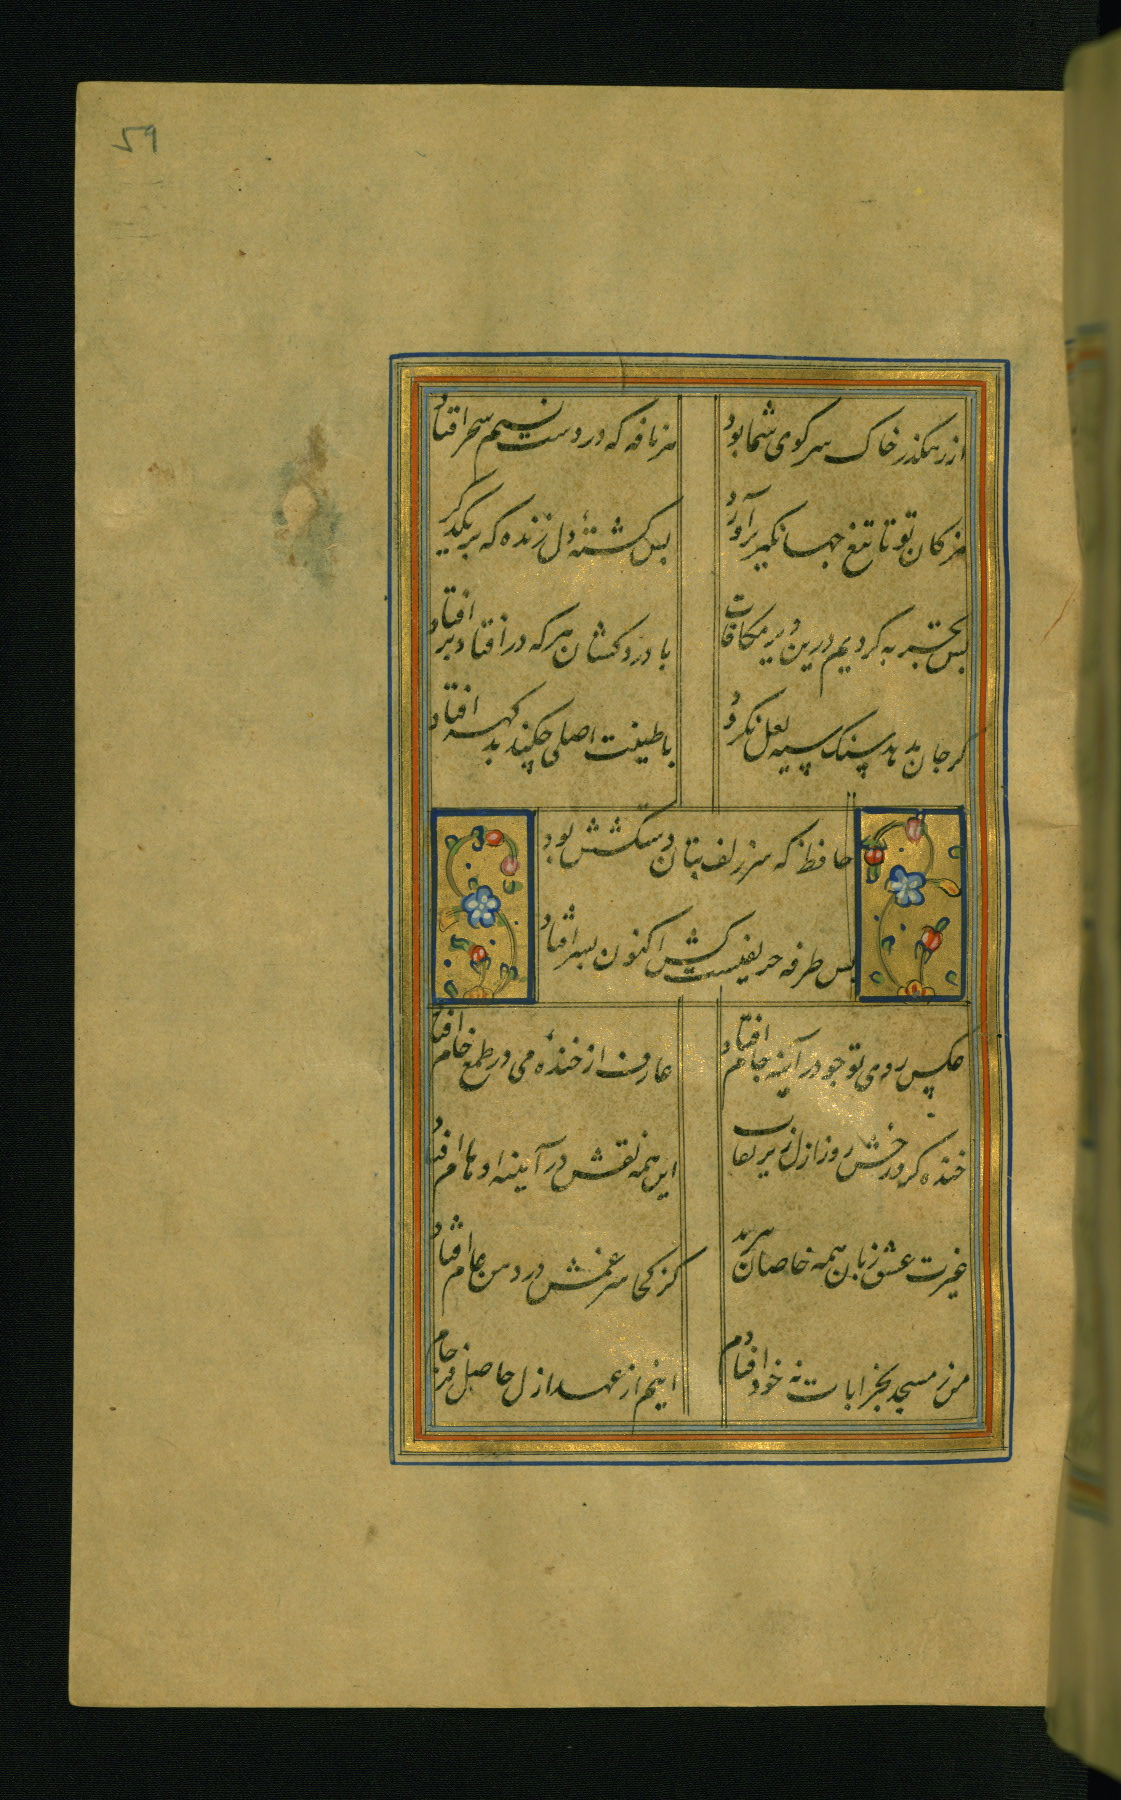 59
از رهگذر خاک سر کوی شما بود
هر نافه که در دست نسیم سحر افتاد
مژکان تو تا تیغ جهانکیر برآورد
بس کشتهٔ دل زنده که بر یکدیگر
بس تجربه کردیم درین دیر مکافات
با دردکشان هر که در افتاد بر افتاد
کر جان بدهد سنک سیه لعل نکردد
با طینت اصلی چکند بد کهر افتاد
حافظ که سر زلف بتان دستکشش بود
بس طرفه حریفیست کش اکنون بسر افتاد
عکس روی تو چو در آینه جام افتاد
عارف از خندهٔ می در طمع خام افتاد
خنده کرد رخش روز ازل زیر نقاب
این همه نقش در آیینه اوهام افتاد
غیرت عشق زبان همه خاصان ببرید
کز کجا سر غمش در دهن عام افتاد
من ز مسجد بخرابات نه خود افتادم
اینهم از عهد ازل حاصل فرجام